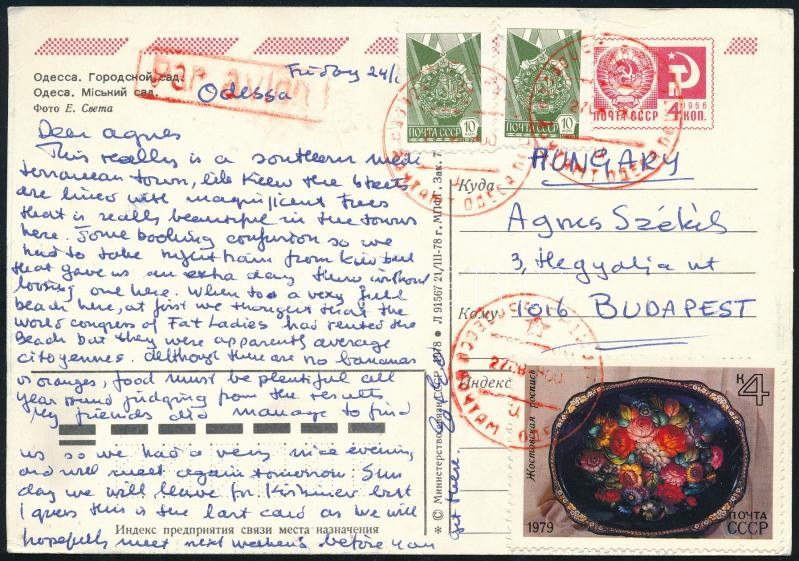 Одесса. Городской сад.
Одеса. Міський сад.
Фото Е. Света
Par avion
Friday 24/
Odessa
Dear Agnes
This really is a southern medi
terranean town, like Kiew the streets
are lined with magnificent trees
that is really beautiful in the towns
here. Some booking confusion so we
had to take night train from Kiev but
that gave us an extra day there without
loosing one here. Went to a very full
beach here, at first we thought that the
World congress of Fat Ladies had rented the
Beach but they were apparently average
citoyennes. Although there are no bananas
or oranges, food must be plentiful all
year round judging from the results
My friends did manage to find
us so we had a very nice evening
and will meet again tomorrow. Sun
day we will leave for Kishinev but
I guess this is the last card as we will
hopefully meet next weekend before you
get there.
Индекс предприятия связи места назначения
* © Министерство связи СССР. 1978 * Л 91567 21/III-78 г. МПФГ. Зак. 7
ПОЧТА СССР 10 КОП
1976
ПОЧТА СССР 10 КОП
ПОЧТА СССР 4 КОП.
1966
ОДЕССА ПОЧТАМТ
Куда
HUNGARY
Agnes Székely
3, Hegyalja ut
Кому
1016 BUDAPEST
Индекс
Жостовская роспись
К4
1979
ПОЧТА
СССР